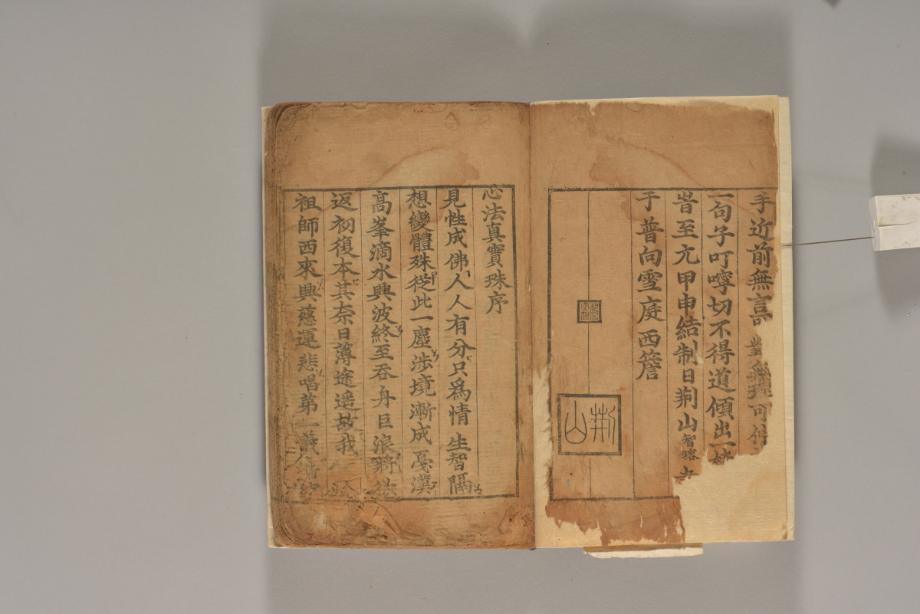 手近前無言
一句子叮嚀切不得道傾出一
旹至元甲申結制日荆山智
于普向雪庭西簷
荆山
心法真寳珠序
見性成佛人人有分只爲情生智隔
想變體殊從此一塵涉境漸成憂漢
髙峯滴水興波終至吞舟巨浪
返初復本其奈日薄途遥故我
祖師西來興慈運悲唱第一義